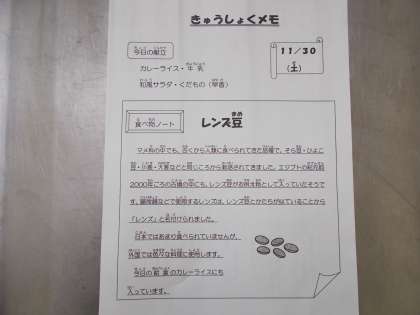 きゅうしょくメモ
今日の献立
11/30
(土)
カレーライス・牛乳
和風サラダ・くだもの(早香)
食べ物ノート
レンズ豆
マメ科の中でも、古くから人類に食べられてきた品種で、そら豆・ひよこ
豆・小麦・大麦などと同じころから栽培されてきました。エジプトの紀元前
2000年ごろの古墳の中にも、レンズ豆がお供え物として入っていたそうで
す。顕微鏡などで使用するレンズは、レンズ豆とかたちが似ていることから
「レンズ」と名付けられました。
日本ではあまり食べられていませんが、
外国では色々な料理に使用します。
今日の給食のカレーライスにも
入っています。